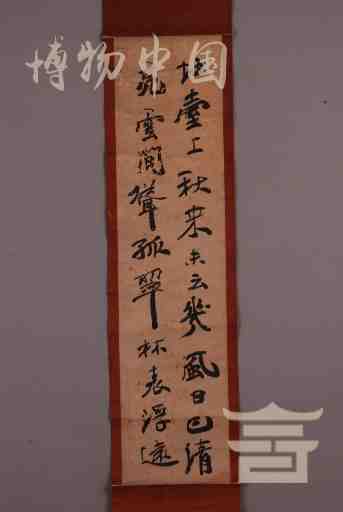 博物中国
臺上秋来未云幾風日已清
雲間聳孤翠林表浮遠